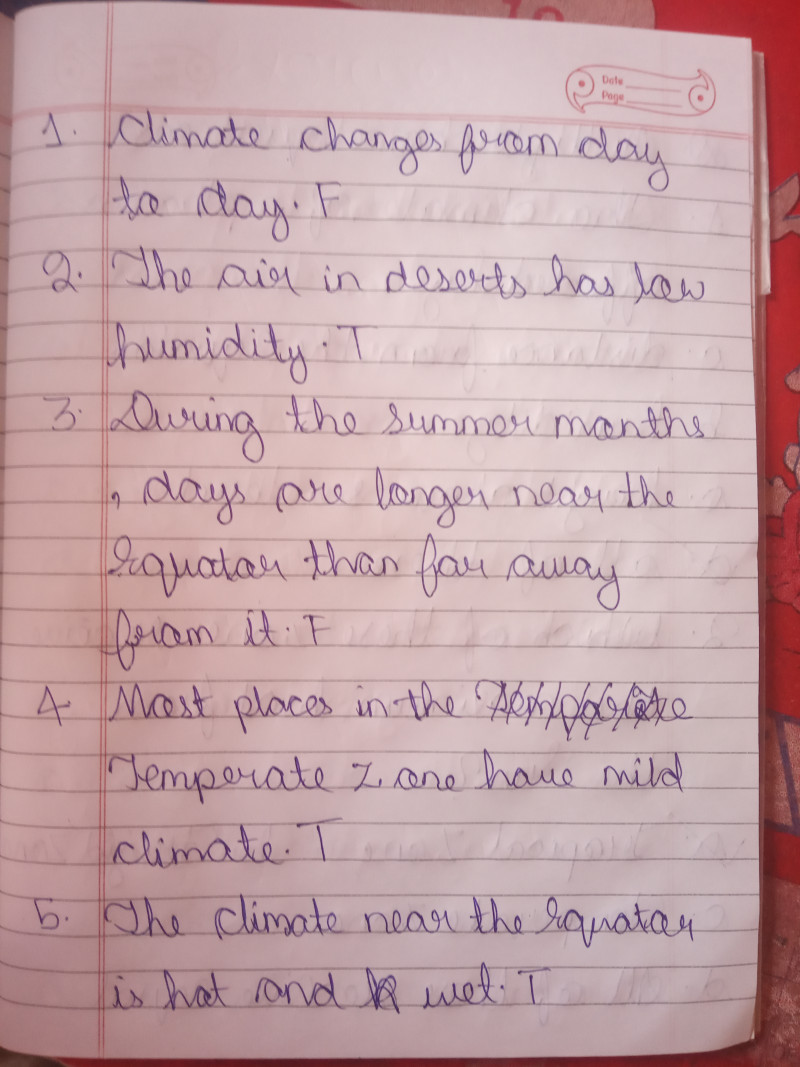 Date
Page
1. Climate changes from day
to day. F
2. The air in deserts has low
humidity. T
3. During the summer months
, days are longer near the
Equator than far away
from it. F
4 Most places in the
Temperate Zone have mild
climate. T
5. The climate near the Equator
is hot and wet. T